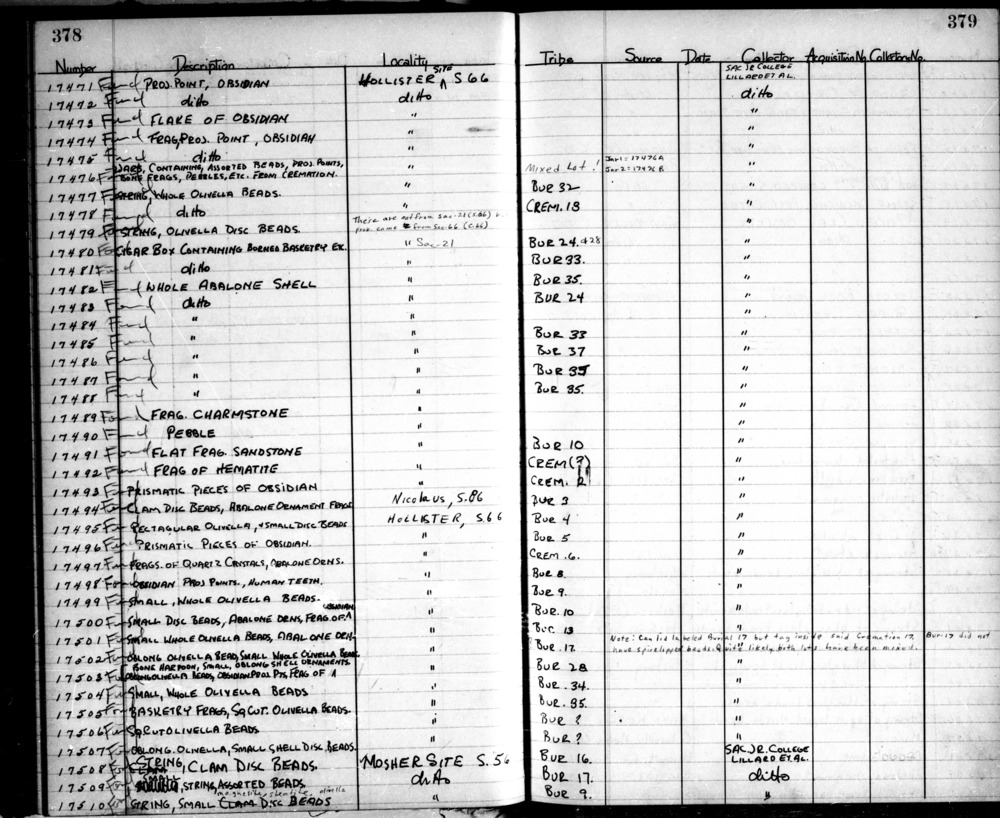 378
Number Description Locality
17471 Found PROJ. POINT, OBSIDIAN HOLLISTER SITE S.66
17472 Found ditto ditto
17473 Found FLAKE OF OBSIDIAN "
17474 Found FRAG, PROJ. POINT, OBSIDIAN "
17475 Found ditto "
17476 JARS, CONTAINING, ASSORTED BEADS, PROJ. POINTS, "
BONE FRAGS, PEBBLES, ETC. FROM CREMATION.
17477 STRING, WHOLE OLIVELLA BEADS. "
17478 Found ditto
17479 STRING, OLIVELLA DISC BEADS. There are not from Sac-21 (S.66)
prob. came from Sac-66 (S.66)
17480 CIGAR BOX CONTAINING BURNED BASKETRY EX. " Sac-21
17481 Found ditto "
17482 Found WHOLE ABALONE SHELL "
17483 Found ditto "
17484 Found " "
17485 Found " "
17486 Found " "
17487 Found " "
17488 Found " "
17489 Found FRAG. CHARMSTONE "
17490 Found PEBBLE "
17491 Found FLAT FRAG. SANDSTONE "
17492 Found FRAG OF HEMATITE "
17493 PRISMATIC PIECES OF OBSIDIAN "
17494 CLAM DISC BEADS, ABALONE ORNAMENT FRAGS Nicolaus, S.86
17495 RECTAGULAR OLIVELLA, & SMALL DISC BEADS HOLLISTER, S.66
17496 PRISMATIC PIECES OF OBSIDIAN. "
17497 FRAGS. OF QUARTZ CRYSTALS, ABALONE ORNS. "
17498 OBSIDIAN PROJ POINTS, HUMAN TEETH. "
17499 SMALL, WHOLE OLIVELLA BEADS. "
17500 SMALL DISC BEADS, ABALONE ORNS, FRAG OF OBSIDIAN "
17501 SMALL WHOLE OLIVELLA BEADS, ABALONE ORN "
17502 OBLONG OLIVELLA BEAD, SMALL WHOLE OLIVELLA BEADS "
BONE HARPOON, SMALL, OBLONG SHELL ORNAMENTS
17503 OBLONG OLIVELLA BEADS, OBSIDIAN PROJ. PTS, FRAG OF "
17504 SMALL, WHOLE OLIVELLA BEADS "
17505 BASKETRY FRAGS, SQ CUT. OLIVELLA BEADS. "
17506 SQ CUT OLIVELLA BEADS "
17507 OBLONG. OLIVELLA, SMALL SHELL DISC BEADS. "
17508 STRING, CLAM DISC BEADS. MOSHER SITE S.56
17509 STRING, ASSORTED BEADS. ditto
magnesite, steatite, olivella
17510 STRING, SMALL CLAM DISC BEADS "
379
Tribe Source Date Collector Acquisition No. Collector's No.
SAC JR COLLEGE
LILLARD ET AL.
ditto
"
"
Mixed Lot! Jar 1 = 17476A "
Jar 2 = 17476B
BUR 32 "
CREM. 13 "
"
BUR 24. & 28 "
BUR 33. "
BUR 35. "
BUR 24 "
"
BUR 33 "
BUR 37 "
BUR 35 "
BUR 35. "
"
"
BUR 10 "
CREM (?) "
CREM. 2 "
BUR 3 "
BUR 4 "
BUR 5 "
CREM. 6. "
BUR 8. "
BUR 9. "
BUR. 10 "
BUR 13 "
BUR. 17. Note: Can lid labeled Burial 17 but tag inside said Cremation 17. Bur. 17 did not
have spire lopped beads. Quite likely both lots have been mixed.
BUR 28 "
BUR. 34. "
BUR. 35. "
BUR ? "
BUR ? "
BUR 16. SAC JR. COLLEGE
LILLARD ET AL.
BUR 17. ditto
BUR 9. "